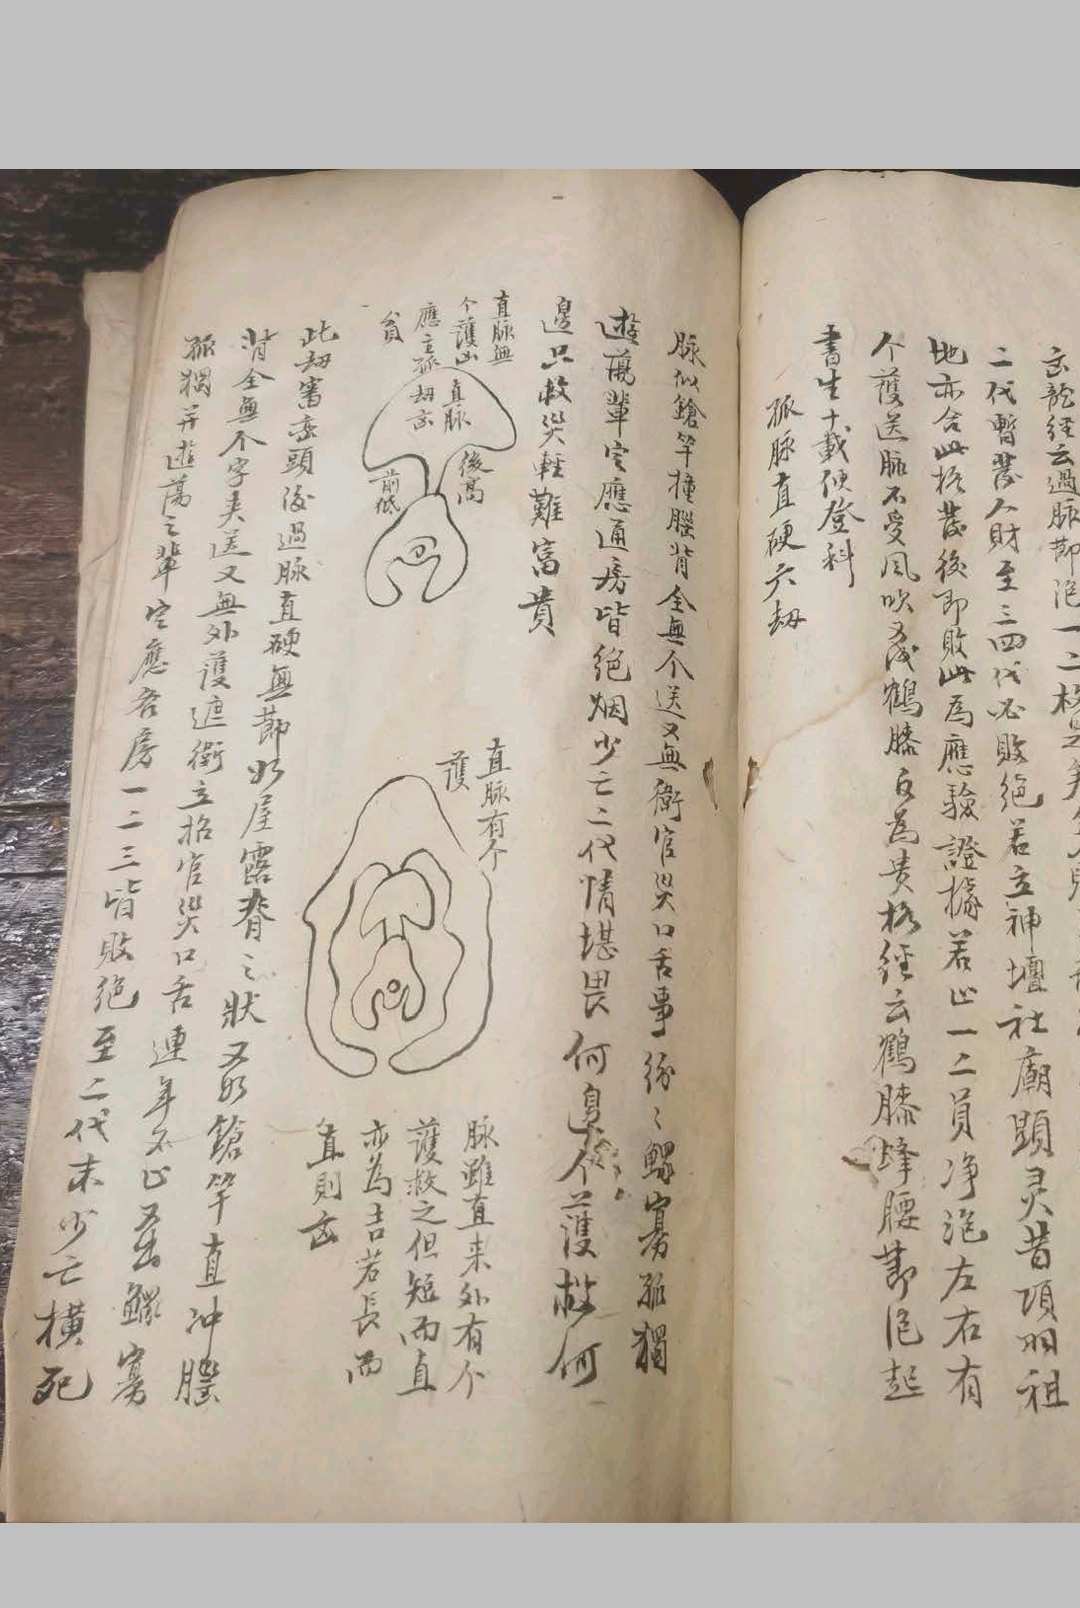 玄龍經云過脉節泡一二
二代暫發人財至三四代必敗絕若立神壇社廟顕灵昔項羽祖
地亦合此格發後即敗此為應驗證據若止一二員净泡左右有
个護送脉不受風吹又成鶴膝反為貴格經云鶴膝蜂腰節泡起
書生十載便登科
孤脉直硬六劫
脉似鎗竿撞腦背全無个送又無衛官災口舌事紛々鰥寡孤獨
遊蕩輩定應通房皆絕烟少亡二代情堪畏何邊个護救何
邊只救災輕難富貴
直脉無
个護山
應主孤劫亦
貧
直脉
後高
前低
直脉有个
護
脉雖直来外有个
護救之但短而直
亦為吉若長而
直則凶
此劫審巒頭後過脉直硬無節如屋露脊之狀又如鎗竿直冲腦
背全無个字夹送又無外護遮衛立招官災口舌連年不止又出鰥寡
孤獨并遊蕩之輩定應各房一二三皆敗絕至二代末少亡横死